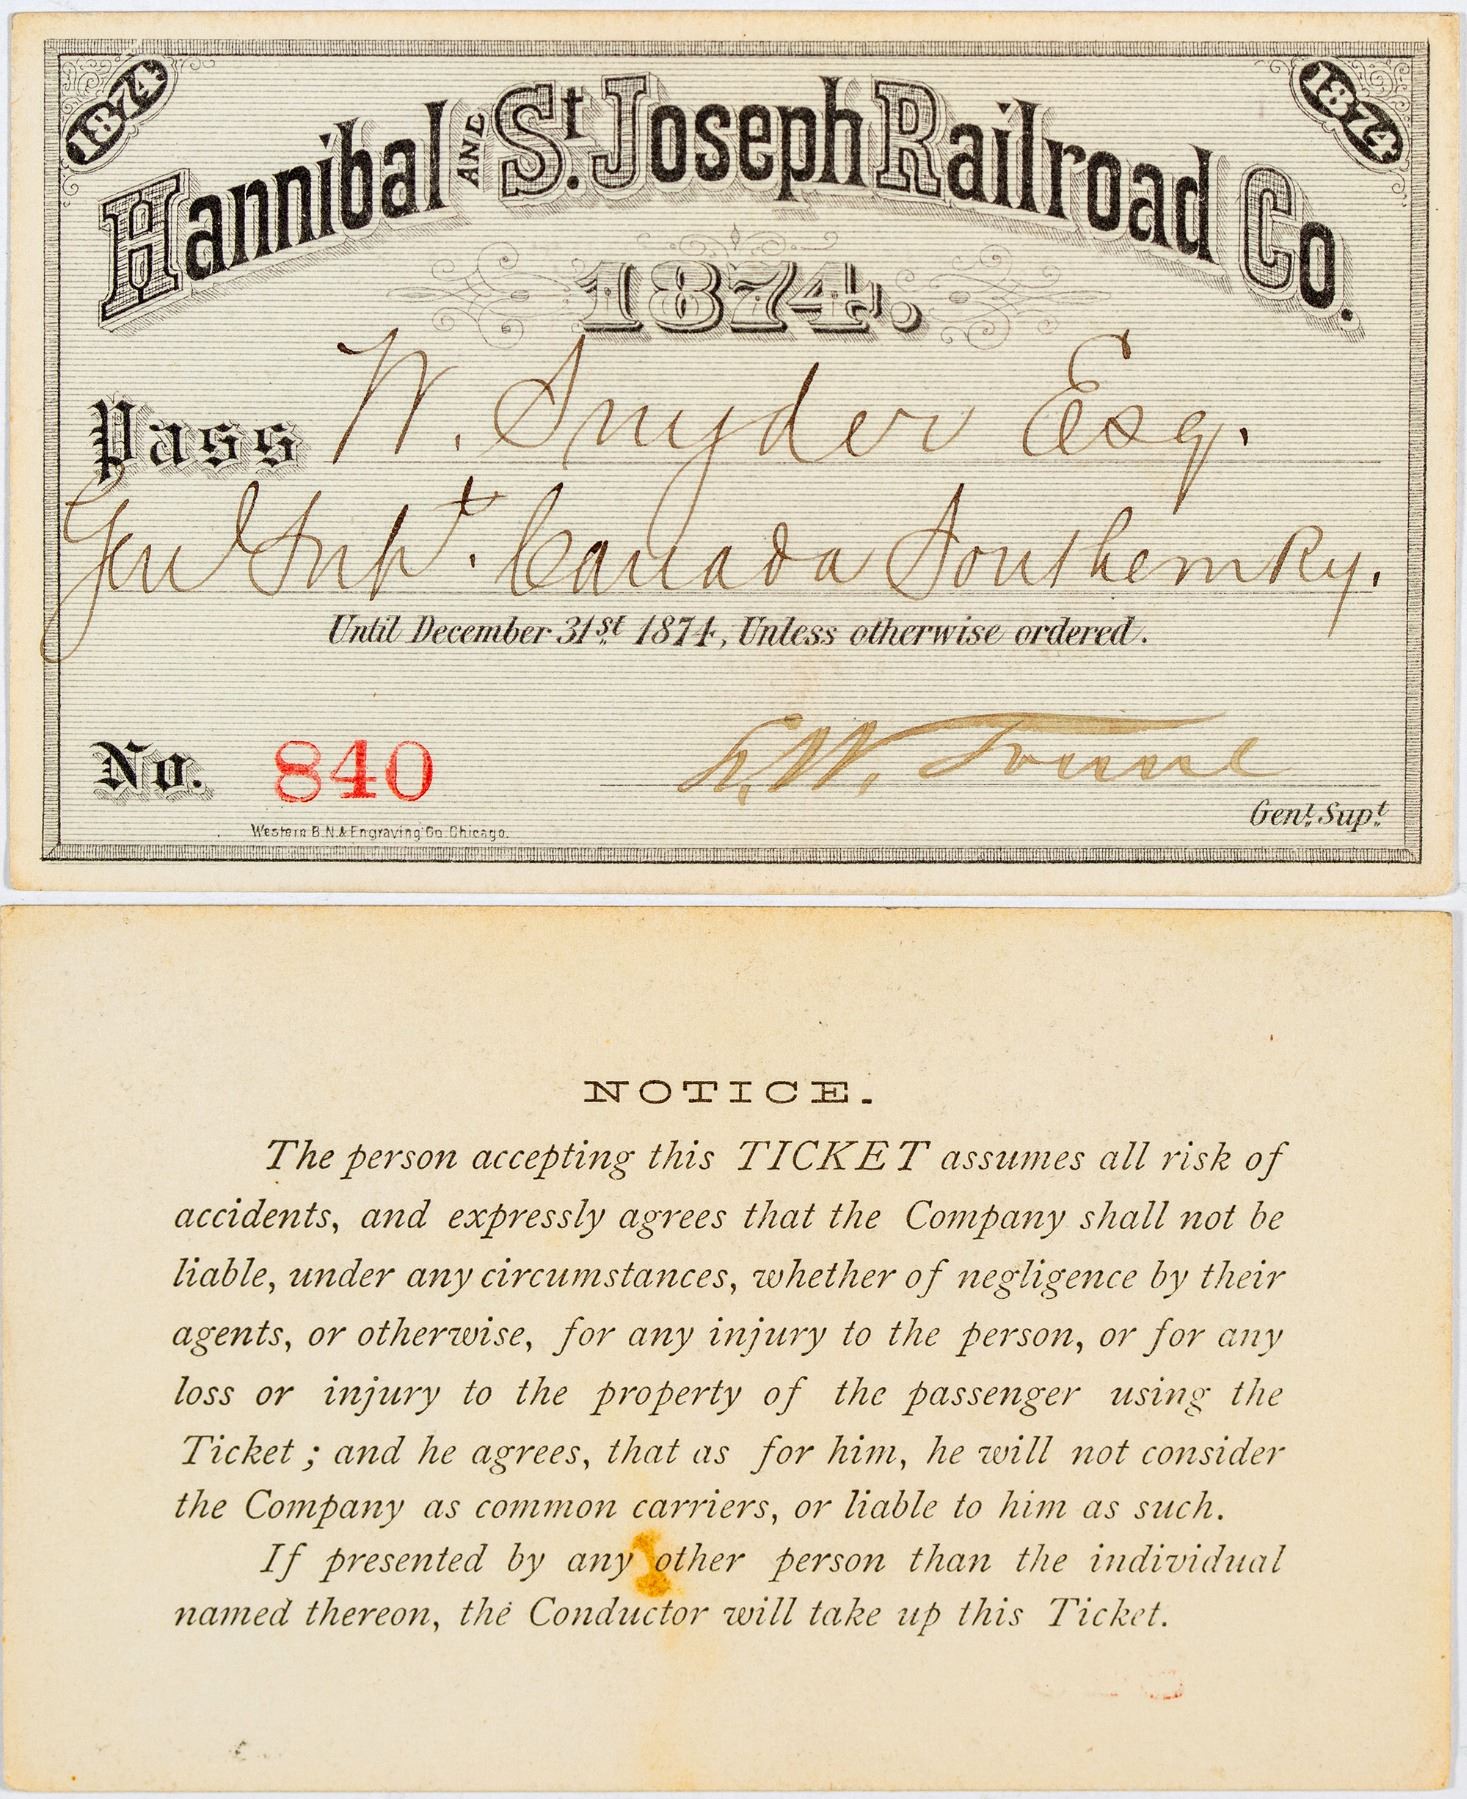 1874
1874
Hannibal AND St. Joseph Railroad Co.
1874.
Pass W. Snyder Esq.
Genl Supt. Canada Southern Ry.
Until December 31st 1874, Unless otherwise ordered.
No. 840
W. Towne
Genl. Supt.
Western B.N.& Engraving Co. Chicago.
NOTICE.
The person accepting this TICKET assumes all risk of
accidents, and expressly agrees that the Company shall not be
liable, under any circumstances, whether of negligence by their
agents, or otherwise, for any injury to the person, or for any
loss or injury to the property of the passenger using the
Ticket ; and he agrees, that as for him, he will not consider
the Company as common carriers, or liable to him as such.
If presented by any other person than the individual
named thereon, the Conductor will take up this Ticket.